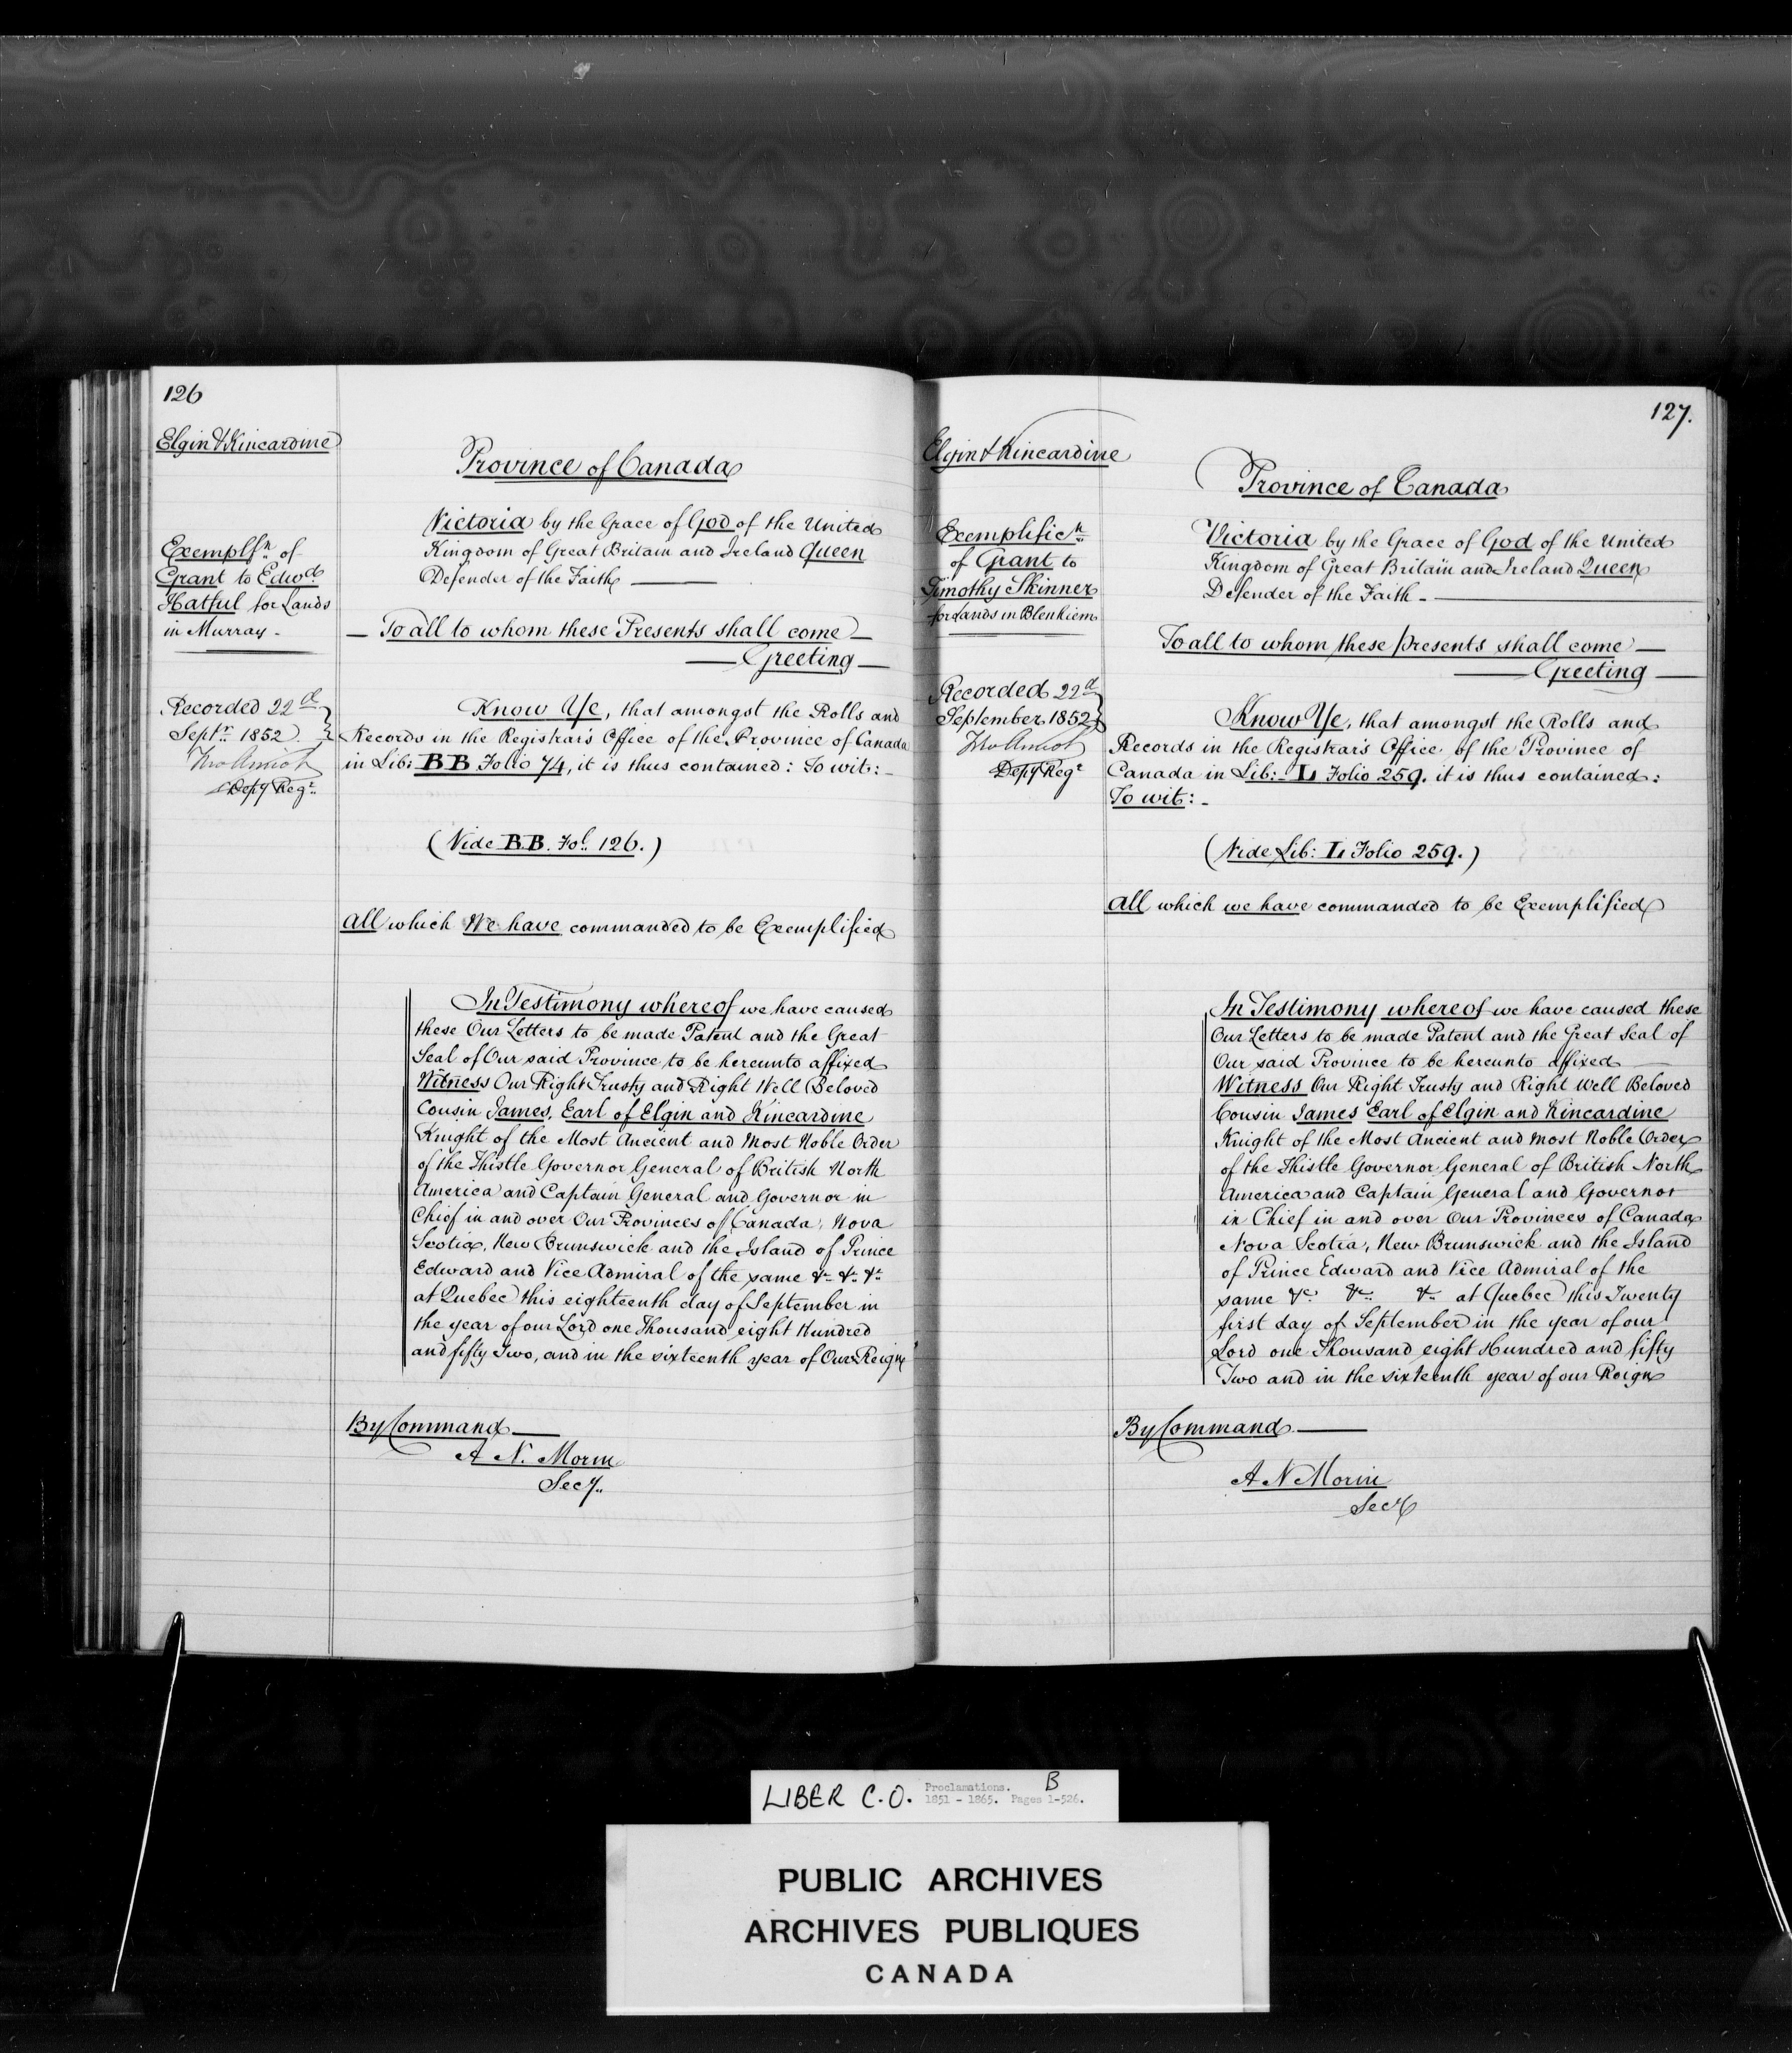 126
Elgin & Kincardine
Exemplfn. of
Grant to Edwd
Hatful for Lands
in Murray -
Recorded 22d
Septr. 1852.
Depy Regr.
Province of Canada
Victoria by the Grace of God of the United
Kingdom of Great Britain and Ireland Queen
Defender of the Faith
To all to whom these Presents shall come
Greeting
Know Ye, that amongst the Rolls and
Records in the Registrar's Office of the Province of Canada
in Lib: BB Folio 74, it is thus contained: To wit: -
(Vide B.B. Fol. 126.)
All which We have commanded to be Exemplified
In Testimony whereof we have caused
these Our Letters to be made Patent and the Great
Seal of Our said Province to be hereunto affixed
Witness Our Right Trusty and Right Well Beloved
Cousin James, Earl of Elgin and Kincardine
Knight of the Most Ancient and Most Noble Order
of the Thistle Governor General of British North
America and Captain General and Governor in
Chief in and over Our Provinces of Canada, Nova
Scotia, New Brunswick and the Island of Prince
Edward and Vice Admiral of the same &c. &c. &c.
at Quebec this eighteenth day of September in
the year of our Lord one Thousand eight Hundred
and fifty Two, and in the sixteenth year of Our Reign
By Command
A N. Morin
Secy.
127.
Elgin & Kincardine
Exemplificn.
of Grant to
Timothy Skinner
for Lands in Blenhiem
Recorded 22d
September 1852
Depy Regr
Province of Canada
Victoria by the Grace of God of the United
Kingdom of Great Britain and Ireland Queen
Defender of the Faith -
To all to whom these presents shall come
Greeting
Know Ye, that amongst the Rolls and
Records in the Registrar's Office of the Province of
Canada in Lib: L Folio 259. it is thus contained:
To wit: -
(Vide Lib: L Folio 259.)
All which we have commanded to be Exemplified
In Testimony whereof we have caused these
Our Letters to be made Patent and the Great Seal of
Our said Province to be hereunto affixed
Witness Our Right Trusty and Right Well Beloved
Cousin James Earl of Elgin and Kincardine
Knight of the Most Ancient and Most Noble Order
of the Thistle Governor General of British North
America and Captain General and Governor
in Chief in and over Our Provinces of Canada
Nova Scotia, New Brunswick and the Island
of Prince Edward and Vice Admiral of the
same &c. &c. &c. at Quebec this Twenty
first day of September in the year of our
Lord one Thousand eight Hundred and fifty
Two and in the sixteenth year of our Reign
By Command
A N Morin
Secy
LIBER C.O. Proclamations. B
1851 - 1865. Pages 1-526.
PUBLIC ARCHIVES
ARCHIVES PUBLIQUES
CANADA